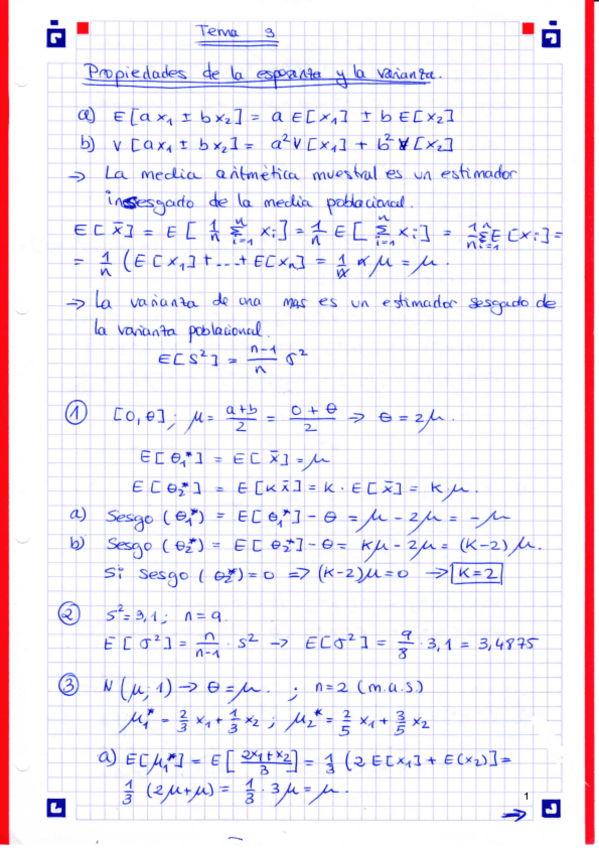 Tema 9
Propiedades de la esperanza y la varianza.
a) E[a x₁ ± b x₂] = a E[x₁] ± b E[x₂]
b) V[ax₁ ± bx₂] = a²V[x₁] + b²V[x₂]
→ La media aritmética muestral es un estimador
insesgado de la media poblacional.
E[x̄] = E[1/n Σᵢ₌₁ⁿ xᵢ] = 1/n E[Σᵢ₌₁ⁿ xᵢ] = 1/n Σᵢ₌₁ⁿ E[xᵢ] =
= 1/n (E[x₁] + ... + E[xₙ] = 1/n n μ = μ.
→ La varianza de una mas es un estimador sesgado de
la varianza poblacional.
E[S²] = n-1/n σ²
① [0,θ]; μ = a+b/2 = 0+θ/2 → θ = 2μ.
E[θ₁*] = E[x̄] = μ
E[θ₂*] = E[K x̄] = K · E[x̄] = K μ.
a) Sesgo (θ₁*) = E[θ₁*] - θ = μ - 2μ = -μ
b) Sesgo (θ₂*) = E[θ₂*] - θ = Kμ - 2μ = (K-2)μ.
Si sesgo (θ₂*) = 0 => (K-2)μ = 0 → K=2
② S² = 3,1; n = 9.
E[σ²] = n/n-1 · S² → E[σ²] = 9/8 · 3,1 = 3,4875
③ N(μ; 1) → θ = μ. ; n=2 (m.a.s)
μ₁* = 2/3 x₁ + 1/3 x₂ ; μ₂* = 2/5 x₁ + 3/5 x₂
a) E[μ₁*] = E[2x₁+x₂/3] = 1/3 (2 E[x₁] + E(x₂)] =
1/3 (2μ+μ) = 1/3 · 3μ = μ.
1